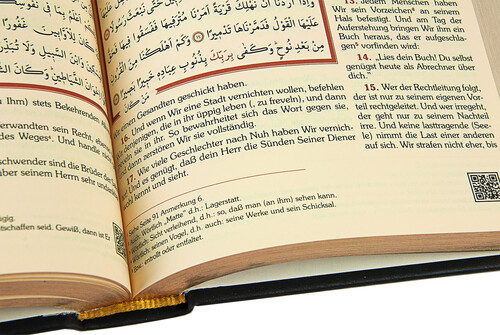 بِمَا فِي نُفُوسِكُمْ
لِلْأَوَّابِينَ غَفُورًا
وَابْنَ السَّبِيلِ وَلَا
إِخْوَانَ الشَّيَاطِينِ وَكَانَ
ihm) stets Bekehrenden
erwandten sein Recht, ebenso
des Weges⁵. Und handle nicht
schwender sind die Brüder der
über seinem Herrn sehr undank
gig.
tschaffen seid. Gewiß, dann ist Er
وَإِذَا أَرَدْنَا أَن نُّهْلِكَ قَرْيَةً أَمَرْنَا مُتْرَفِيهَا فَفَسَقُوا فِيهَا
عَلَيْهَا الْقَوْلُ فَدَمَّرْنَاهَا تَدْمِيرًا ١٦ وَكَمْ أَهْلَكْنَا مِنَ الْقُرُونِ
مِن بَعْدِ نُوحٍ وَكَفَى بِرَبِّكَ بِذُنُوبِ عِبَادِهِ خَبِيرًا بَصِيرًا
einen Gesandten geschickt haben.
16. Und wenn Wir eine Stadt vernichten wollen, befehlen
denjenigen, die in ihr üppig leben (, zu freveln), und dann
freveln sie in ihr. So bewahrheitet sich das Wort gegen sie,
und dann zerstören Wir sie vollständig.
17. Wie viele Geschlechter nach Nuh haben Wir vernich-
Und es genügt, daß dein Herr die Sünden Seiner Diener
wohl kennt und sieht.
13. Jedem Menschen haben
Wir sein Vorzeichen⁴ an seinem
Hals befestigt. Und am Tag der
Auferstehung bringen Wir ihm ein
Buch heraus, das er aufgeschla-
gen⁵ vorfinden wird:
14. „Lies dein Buch! Du selbst
genügst heute als Abrechner über
dich.“
15. Wer der Rechtleitung folgt,
der ist nur zu seinem eigenen Vor-
teil rechtgeleitet. Und wer irregeht,
der geht nur zu seinem Nachteil
irre. Und keine lasttragende (See-
le) nimmt die Last einer anderen
auf sich. Wir strafen nicht eher, bis
Siehe Seite 91 Anmerkung 6.
Wörtlich „Matte“ d.h.: Lagerstatt.
Wörtlich: Sicht verleihend, d.h.: so, daß man (an ihm) sehen kann.
Wörtlich: seinen Vogel, d.h. auch: seine Werke und sein Schicksal.
entrollt oder entfaltet.